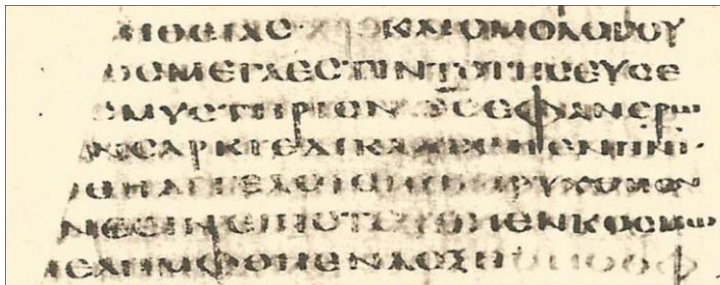 ΛΗΘΕΙΑϹ ΚΑΙΟΜΟΛΟΓΟΥ
ΩϹΜΕΓΑΕϹΤΙΝΤΟΤΗϹΕΥϹΕ
ϹΜΥϹΤΗΡΙΟΝΟϹΕΦΑΝΕΡΩ
ΝϹΑΡΚΙΕΔΙΚΑΙΩΘΗΕΝΠΝΙ·
ΦΘΗΑΓΓΕΛΟΙϹΕΚΗΡΥΧΘΗΕΝ
ΝΕϹΙΝΕΠΙϹΤΕΥΘΗΕΝΚΟϹΜΩ
ΕΛΗΜΦΘΗΕΝΔΟΞΗ